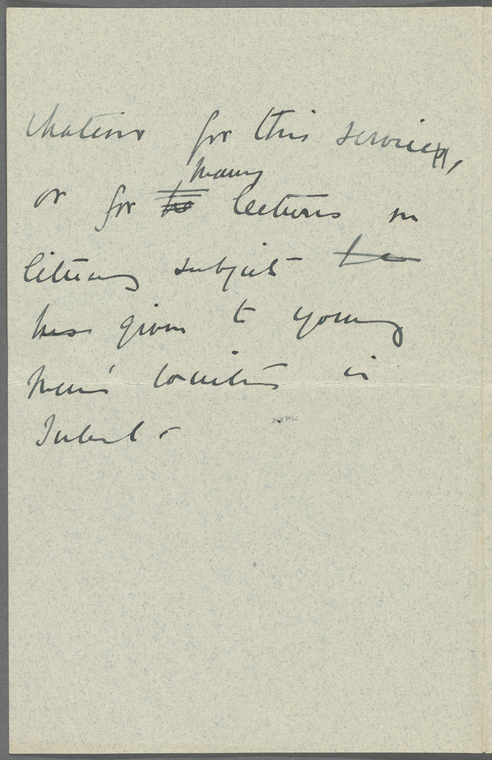 for this service,
or for many lectures on
literary subjects
has given to young
men's societies in
Ireland